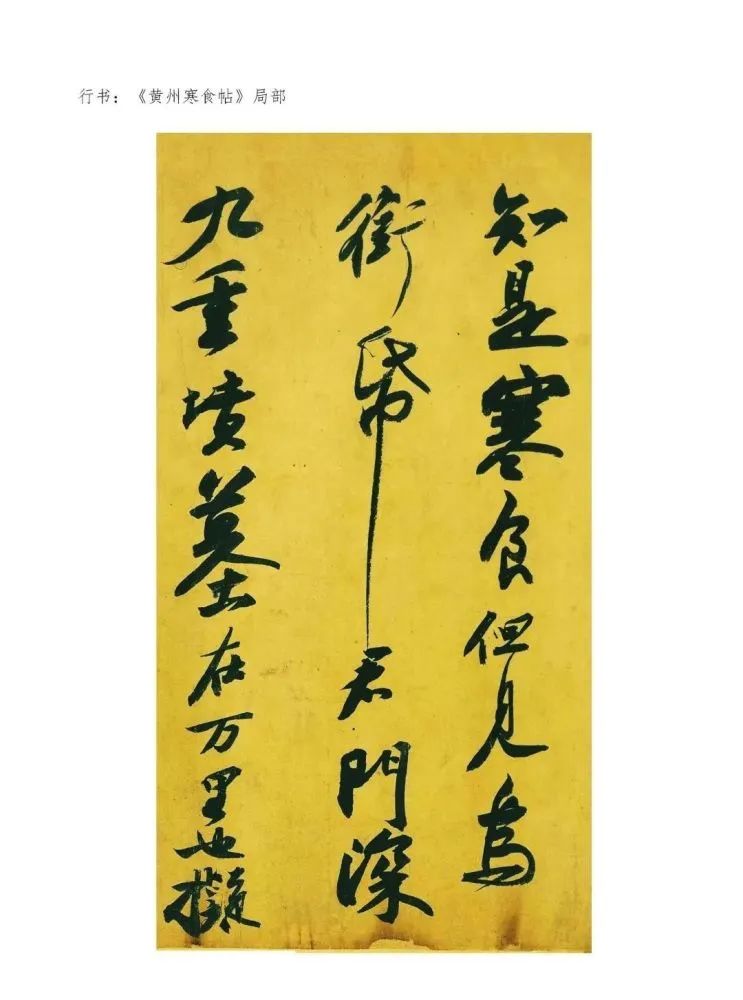 行书：《黄州寒食帖》局部
知是寒食但见乌
衔帋君門深
九重墳墓在万里也擬